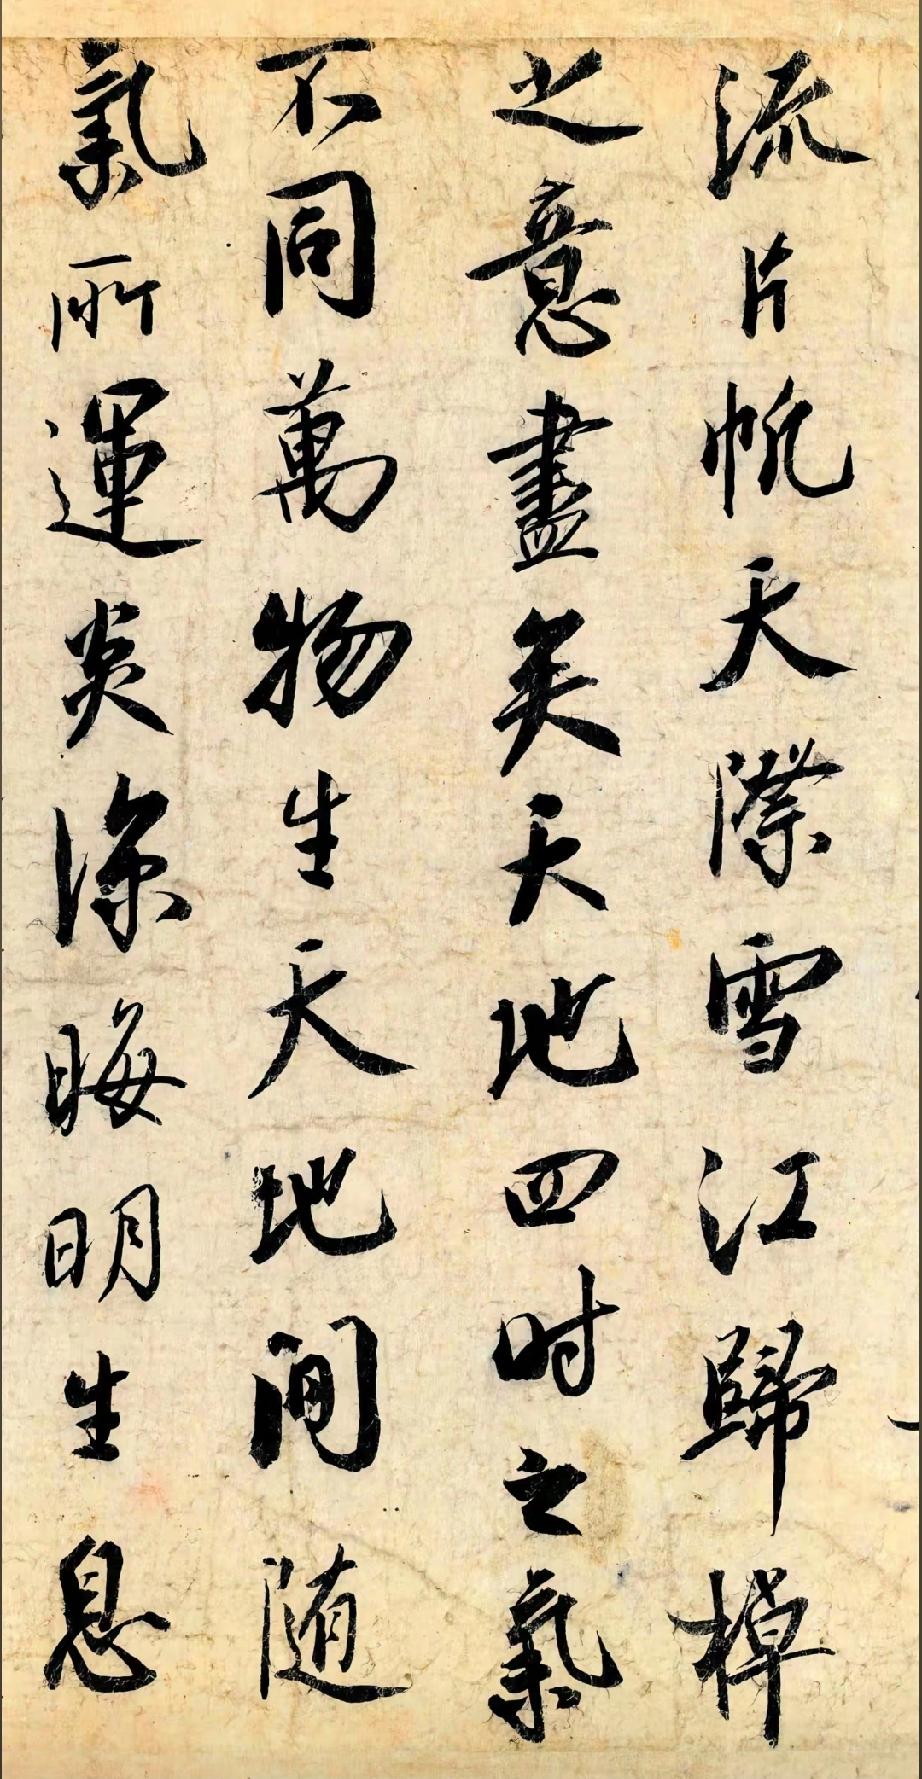 流片帆天際雪江歸棹
之意盡矣天地四时之氣
不同萬物生天地間随
氣所運炎凉晦明生息